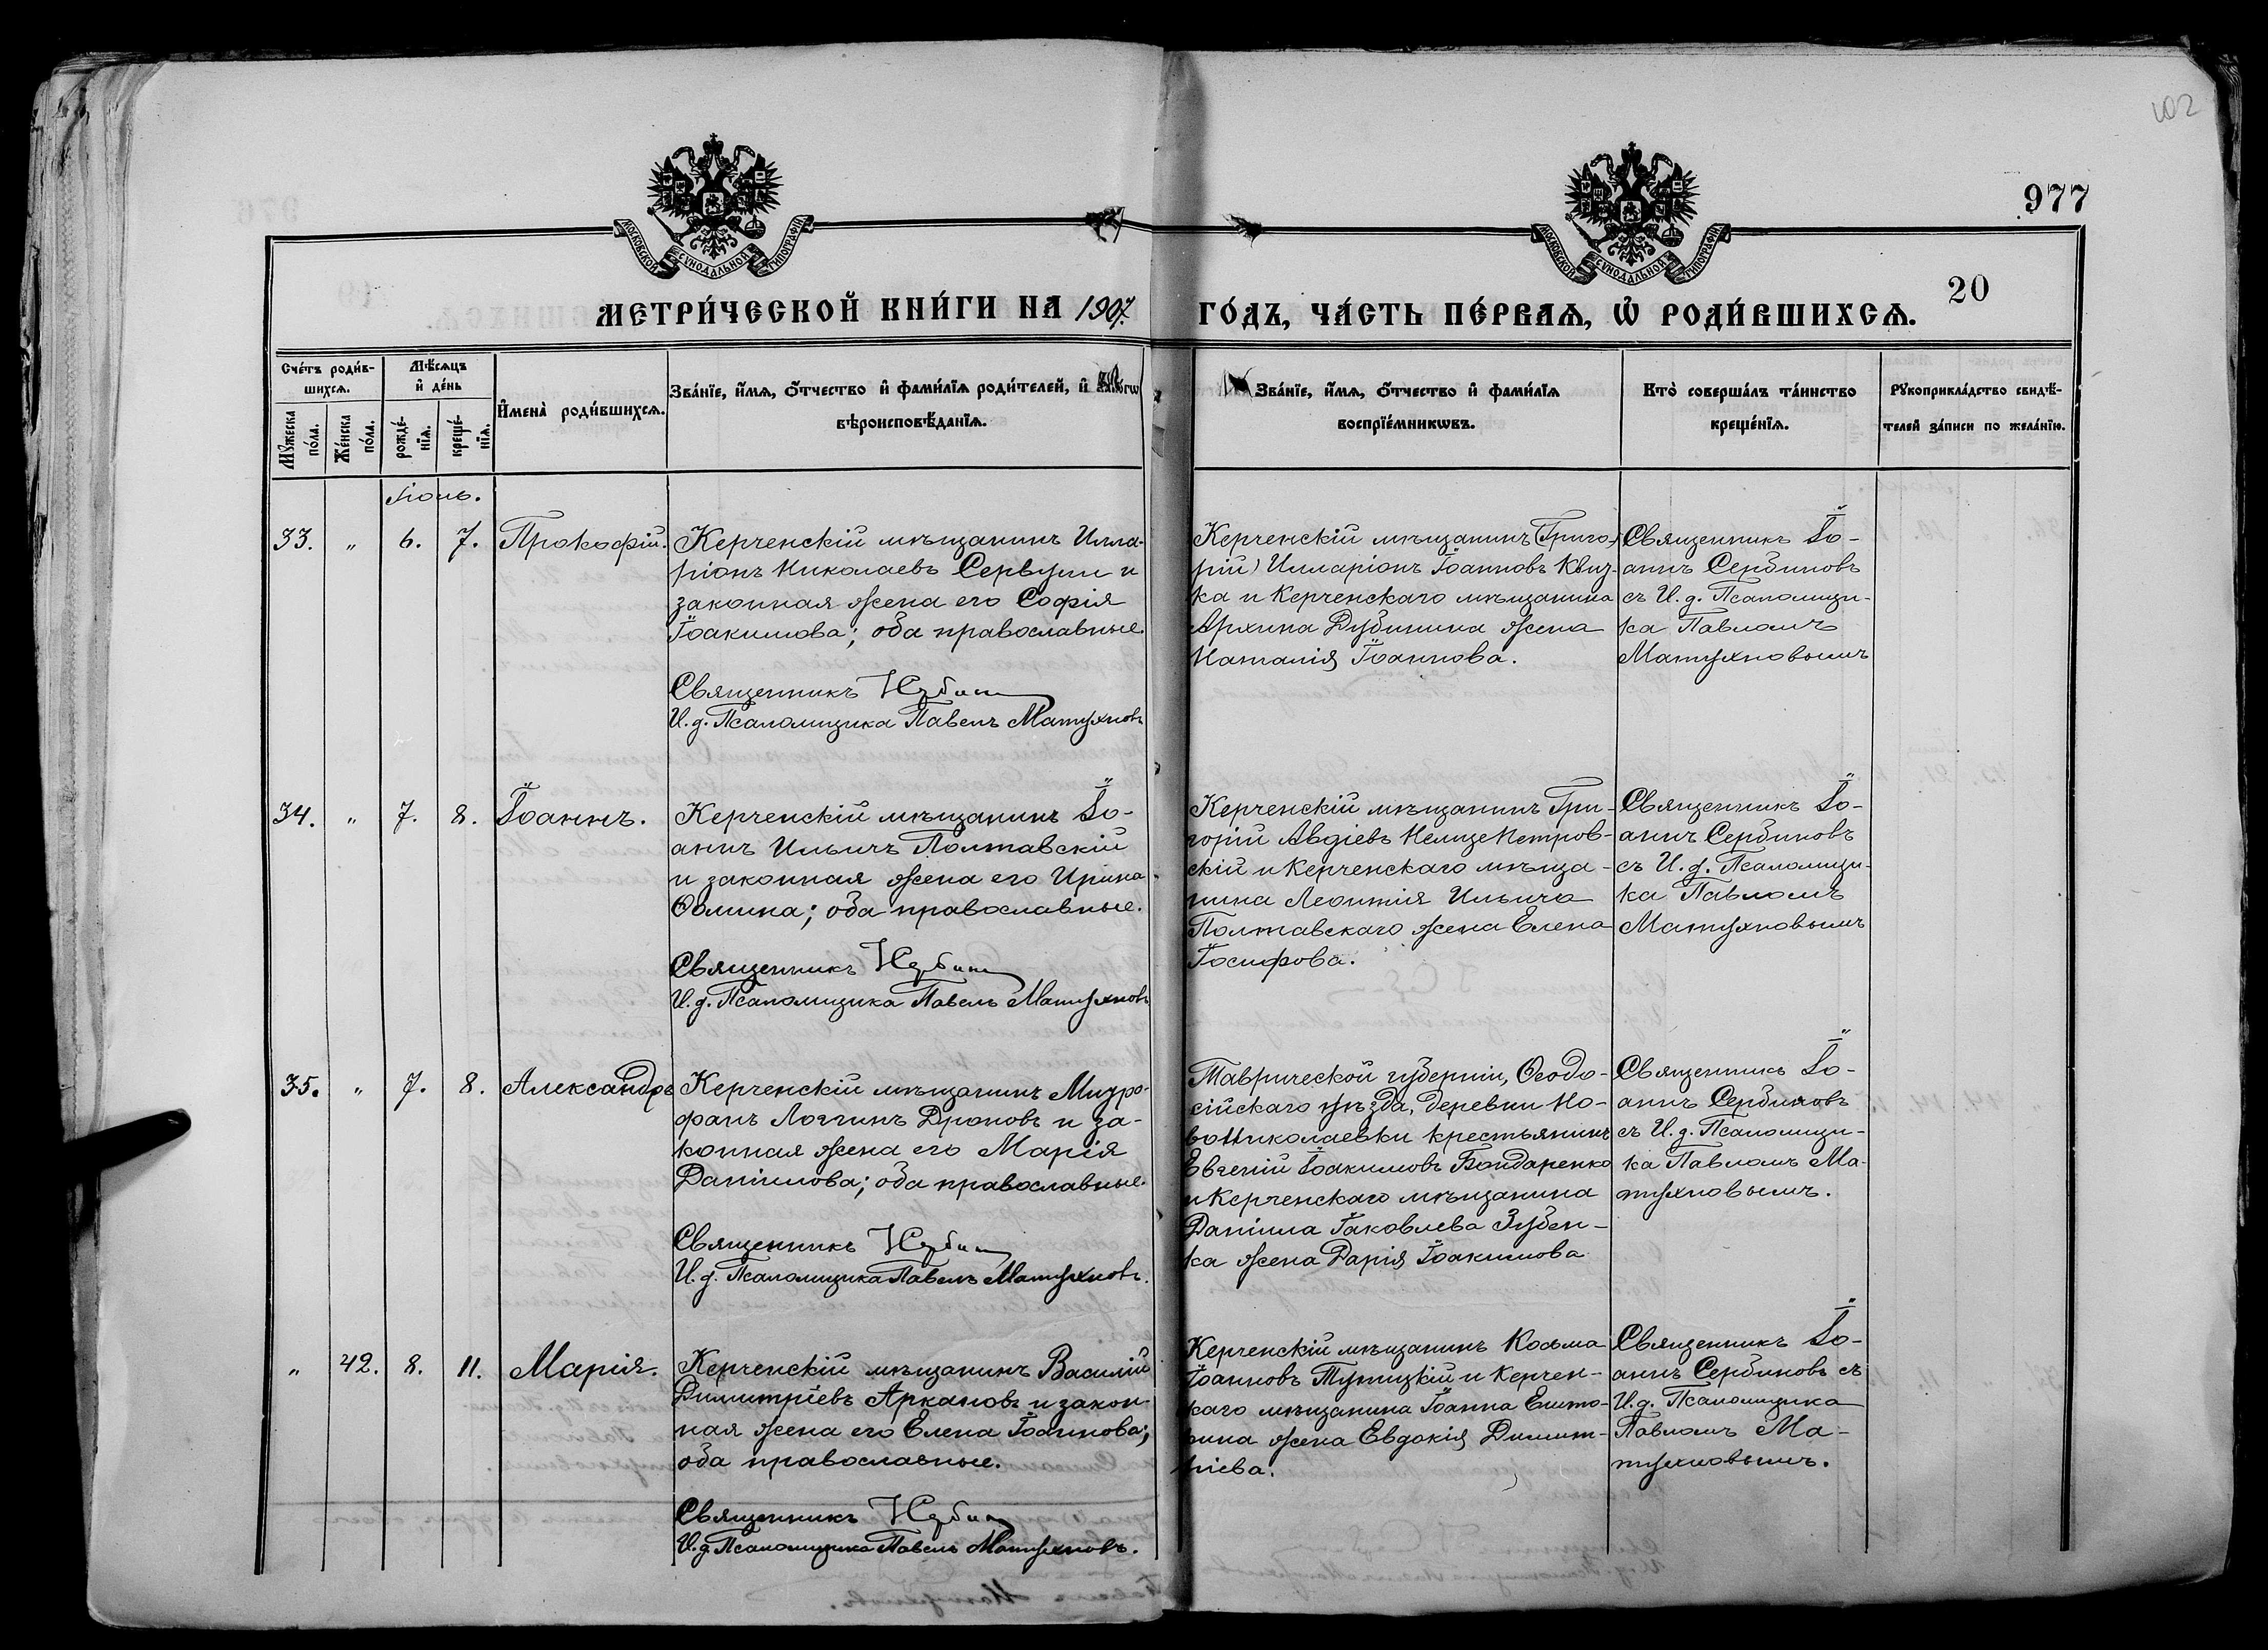 102
977
МОСКОВСКОЙ СУНОДАЛЬНОЙ ТИПОГРАФІИ
МОСКОВСКОЙ СУНОДАЛЬНОЙ ТИПОГРАФІИ
20
МЕТРИ́ЧЕСКОЙ КНИ́ГИ НА 1907. ГО́ДЪ, ЧА́СТЬ ПЕ́РВАѦ, Ѡ҆ РОДИ́ВШИХСѦ.
Сче́тъ роди́в-
шихсѧ.
Мꙋ́жеска по́ла.
Же́нска по́ла.
Мѣ́сѧцъ
и҆ де́нь
рожде́-нїѧ.
креще́-нїѧ.
И҆мена̀ роди́вшихсѧ.
Зва́нїе, и҆́мѧ, ѻ҆́тчество и҆ фами́лїѧ роди́телей, и҆ како́гѡ
вѣроисповѣ́данїѧ.
Зва́нїе, и҆́мѧ, ѻ҆́тчество и҆ фами́лїѧ
воспрїе́мникѡвъ.
Кто̀ соверша́лъ та́инство
креще́нїѧ.
Рꙋкоприкла́дство свидѣ́-
телей за́писи по жела́нїю.
Іюль.
33. „ 6. 7. Прокофій.
Керченскій мѣщанинъ Илла-
ріонъ Николаевъ Сервули и
законная жена его Софія
Іоакимова; оба православные.
Священникъ
И. д. Псаломщика Павелъ Матухновъ
Керченскій мѣщанинъ (Григо-
рій) Илларіонъ Іоанновъ Квиз-
ка и Керченскаго мѣщанина
Архипа Дубинина жена
Наталія Іоаннова.
Священникъ Іо-
аннъ Сербиновъ
съ И. д. Псаломщи-
ка Павломъ
Матухновымъ
34. „ 7. 8. Іоаннъ.
Керченскій мѣщанинъ Іо-
аннъ Ильичъ Полтавскій
и законная жена его Ирина
Ѳомина; оба православные.
Священникъ
И. д. Псаломщика Павелъ Матухновъ
Керченскій мѣщанинъ Гри-
горій Авдіевъ НелицеПетров-
скій и Керченскаго мѣща-
нина Леонтія Ильича
Полтавскаго жена Елена
Іосифова.
Священникъ Іо-
аннъ Сербиновъ
съ И. д. Псаломщи-
ка Павломъ
Матухновымъ
35. „ 7. 8. Александръ
Керченскій мѣщанинъ Митро-
фанъ Логгинъ Дроновъ и за-
конная жена его Марія
Даніилова; оба православные.
Священникъ
И. д. Псаломщика Павелъ Матухновъ.
Таврической губерніи, Ѳеодо-
сійскаго уѣзда, деревни Но-
воНиколаевки крестьянинъ
Евгеній Іоакимовъ Бондаренко
и Керченскаго мѣщанина
Даніила Іаковлева Зубен-
ка жена Дарія Іоакимова
Священникъ Іо-
аннъ Сербиновъ
съ И. д. Псаломщи-
ка Павломъ Ма-
тухновымъ.
„ 42. 8. 11. Марія.
Керченскій мѣщанинъ Василій
Димитріевъ Аркановъ и закон-
ная жена его Елена Іоаннова;
оба православные.
Священникъ
И. д. Псаломщика Павелъ Матухновъ.
Керченскій мѣщанинъ Косьма
Іоанновъ Тупицкій и Керчен-
скаго мѣщанина Іоанна
жена Евдокія Димит-
ріева.
Священникъ Іо-
аннъ Сербиновъ съ
И. д. Псаломщика
Павломъ Ма-
тухновымъ.